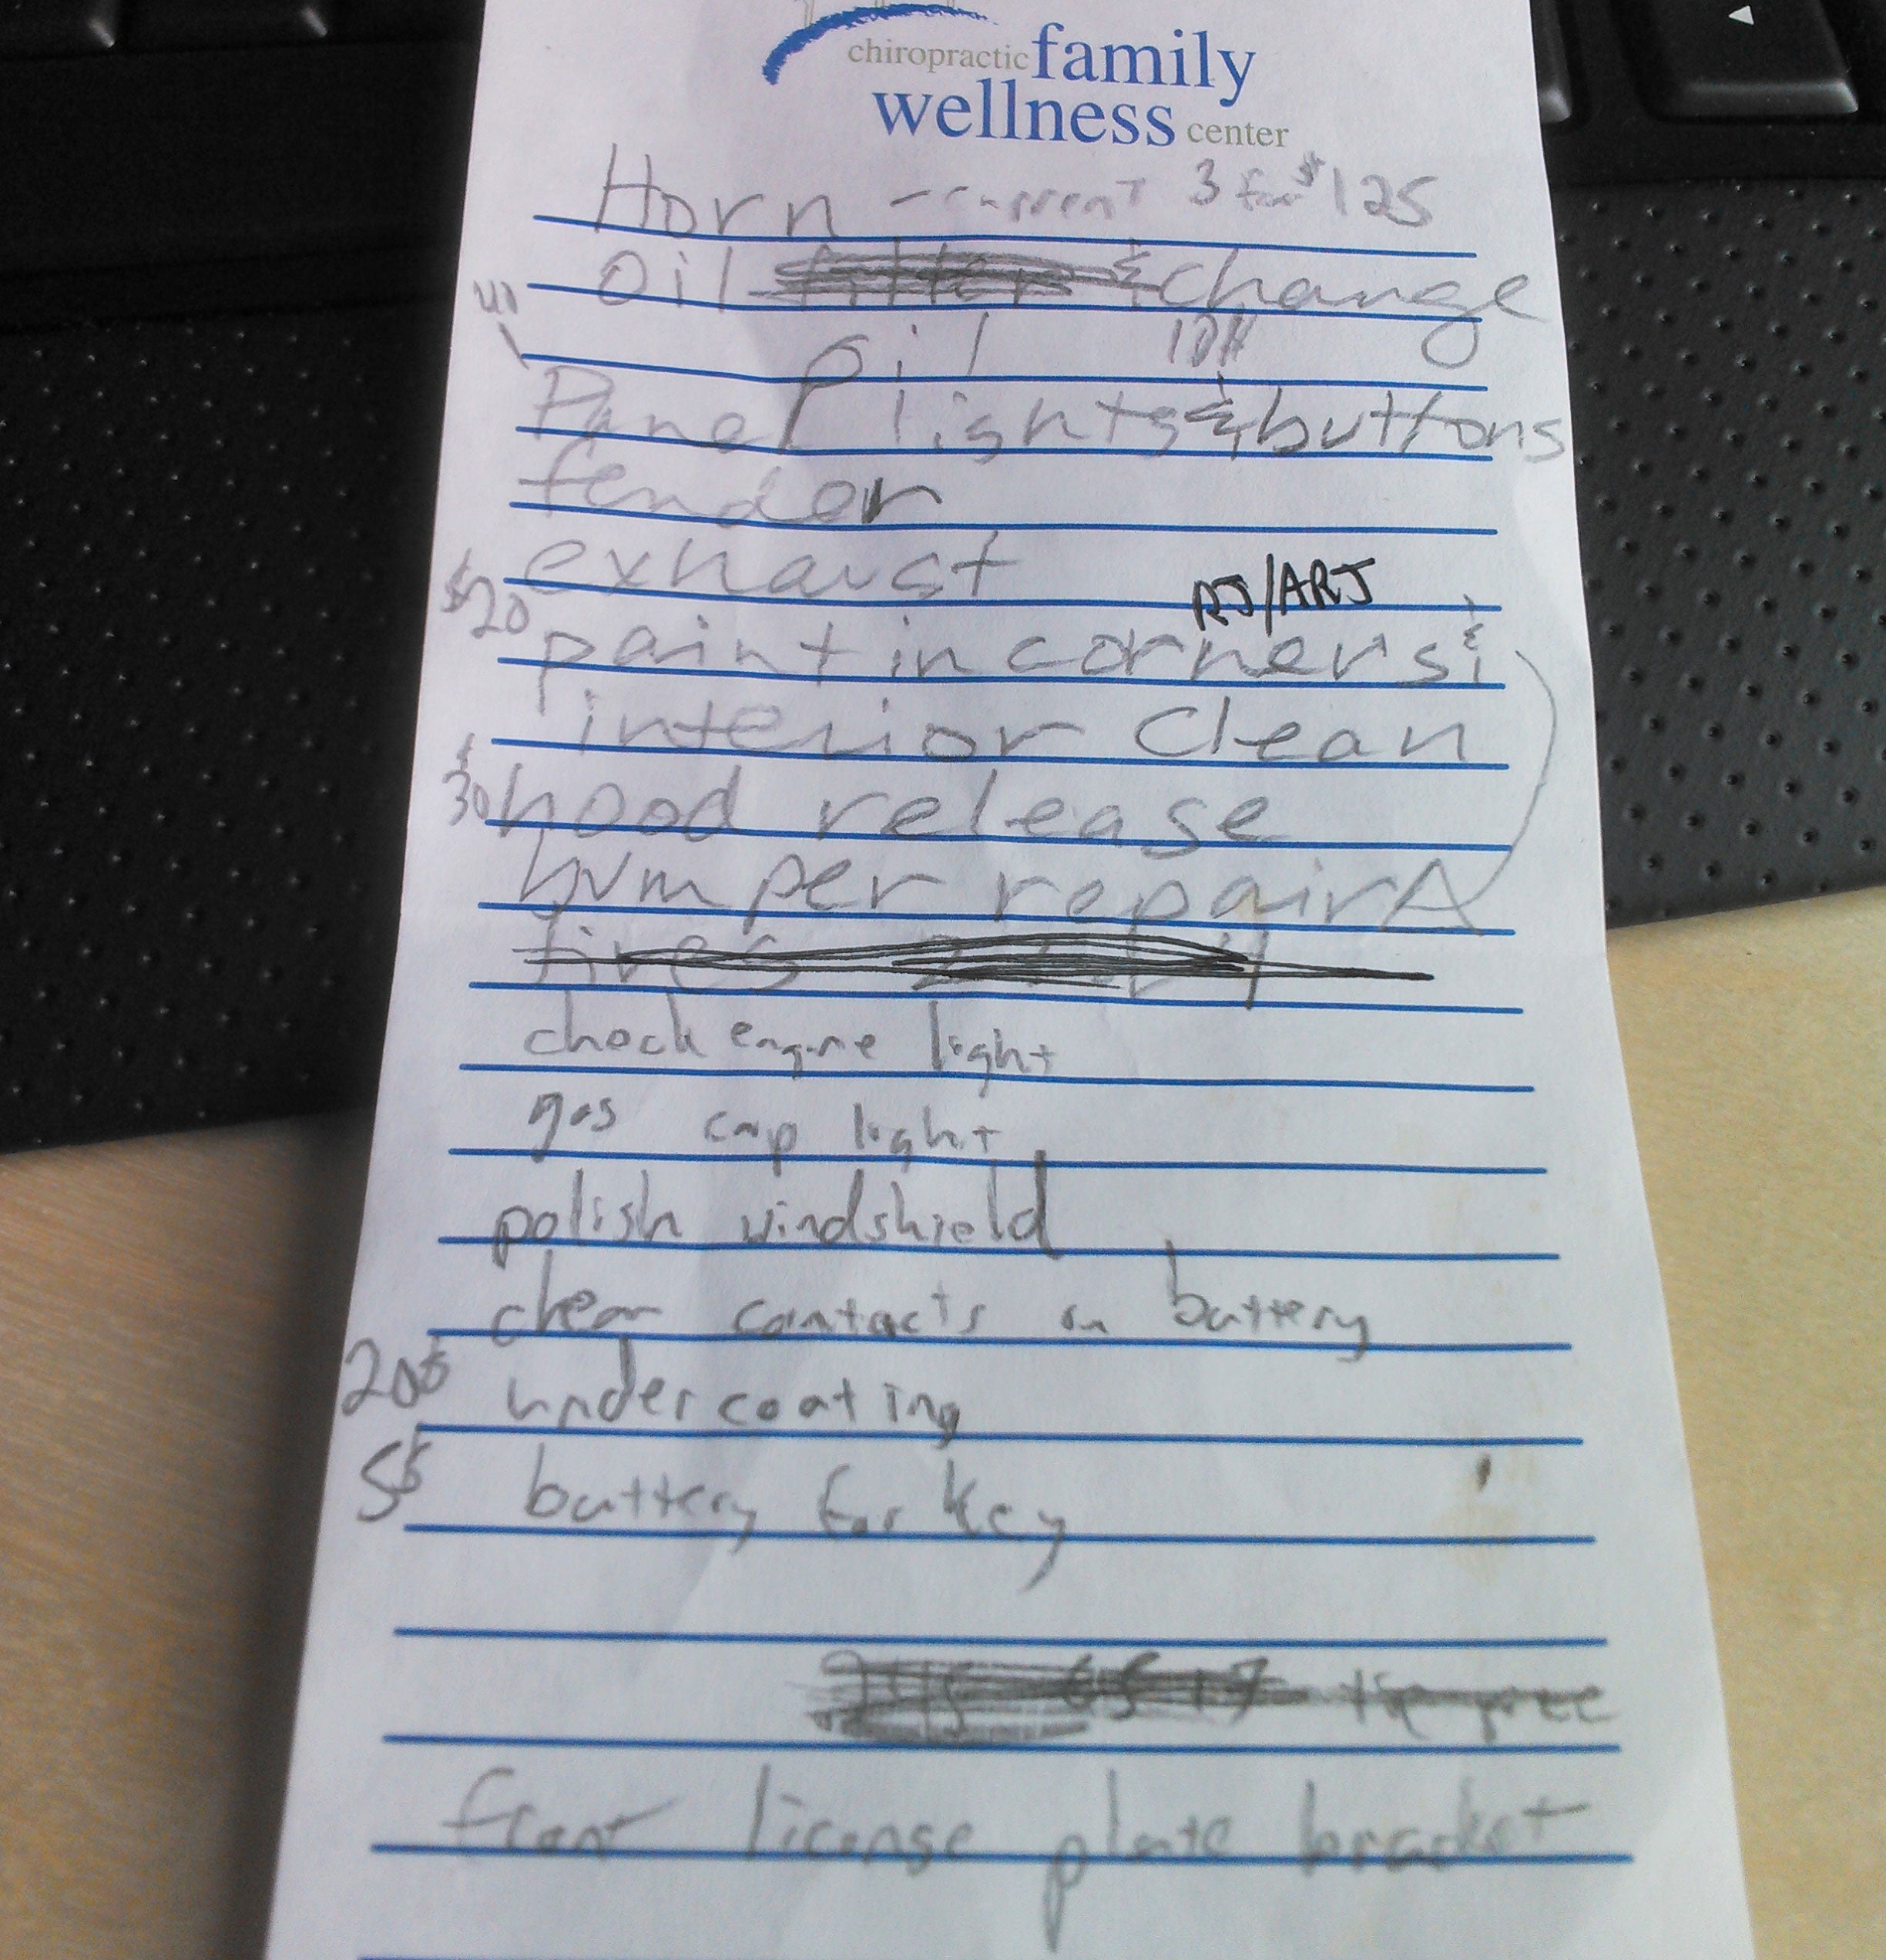 chiropractic family
wellness center
Horn - current 3 for $125
oil filter & change
oil
Panel lights & buttons
fender
exhaust
RJ/ARJ
$20
paint in corners &
interior clean
$30 hood release
bumper repair A
tires
check engine light
gas cap light
polish windshield
clean contacts on battery
200$ undercoating
5$ battery for key
65 17
front license plate bracket